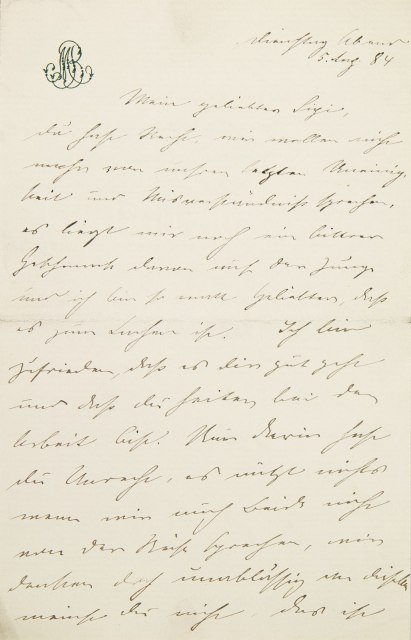 MB
Dienstag Abend
5. Aug 84
Mein geliebter Sigi,
du hast Recht, wir wollen nicht
mehr von unsrer letzten Uneinig-
keit und Missverständniss sprechen,
es liegt mir noch ein bitterer
Geschmack davon auf der Zunge
und ich bin so matt Geliebter, dass
es zum Lachen ist. Ich bin
zufrieden, dass es dir gut geht
und dass du heiter bei der
Arbeit bist. Nur darin hast
du Unrecht, es nützt nichts
wenn wir auch beide nicht
von der Reise sprechen, wir
denken doch unablässig an dieselbe
meinst du nicht, das ist